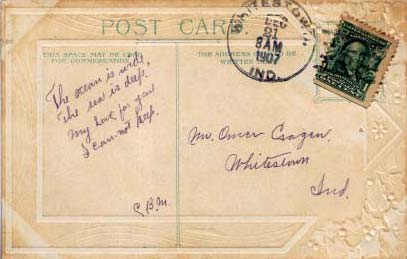 POST CARD
THIS SPACE MAY BE USED
FOR COMMUNICATION
THE ADDRESS ON
WHITESTOWN,
DEC
21
8AM
1907
IND.
The ocean is wide
The sea is deep.
My love for you
I can not keep.
C.B.M.
Mr. Omer
Whitestown
Ind.